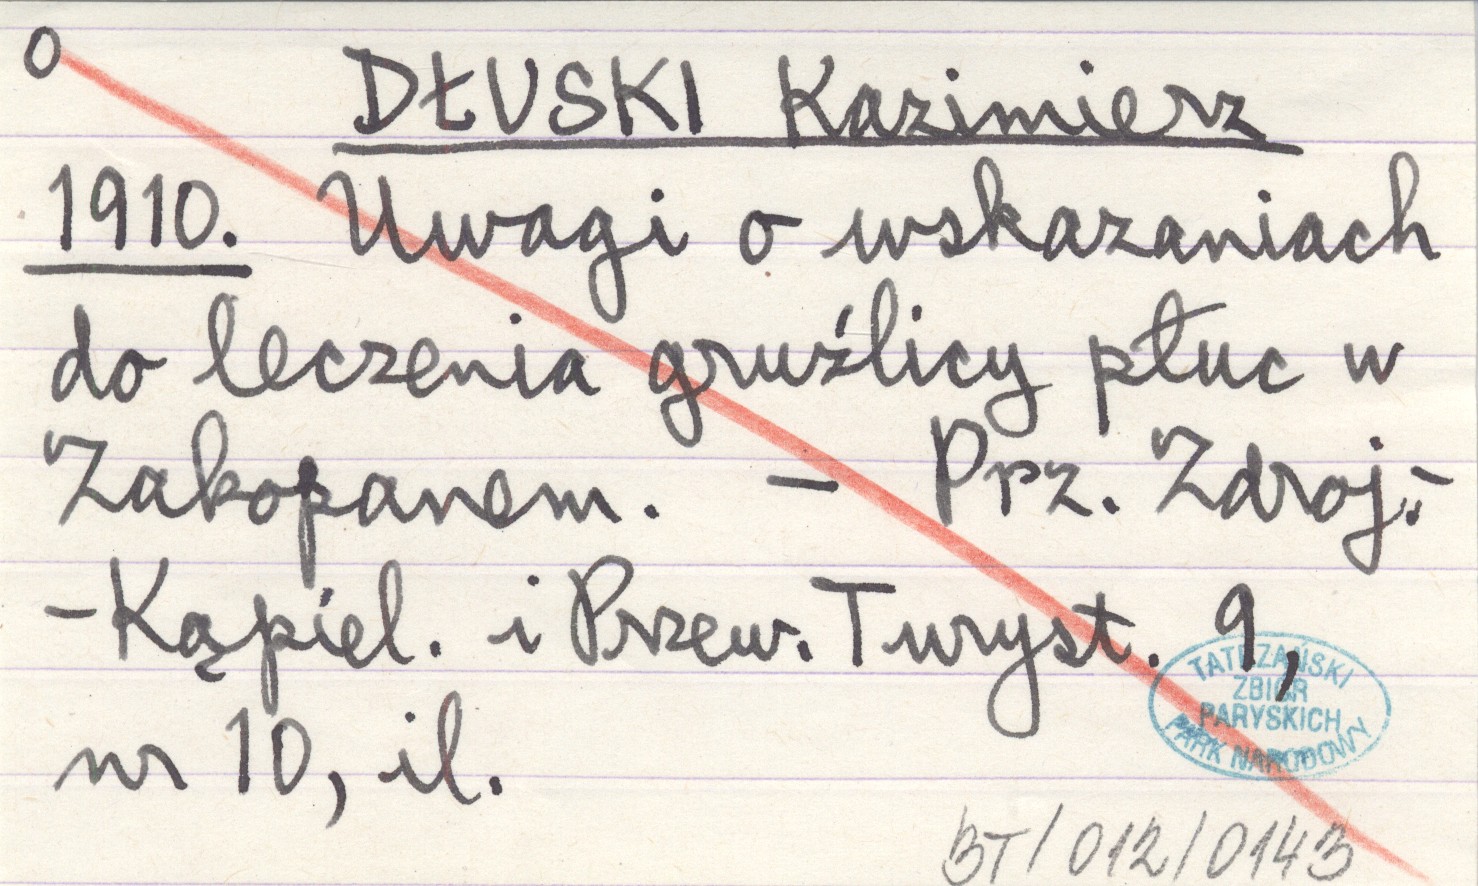 O
DŁUSKI Kazimierz
1910. Uwagi o wskazaniach
do leczenia gruźlicy płuc w
Zakopanem. – Prz. Zdroj.-
-Kąpiel. i Przew. Turyst. 9,
nr 10, il.
TATRZAŃSKI
ZBIÓR
PARYSKICH
PARK NARODOWY
BT/012/0143